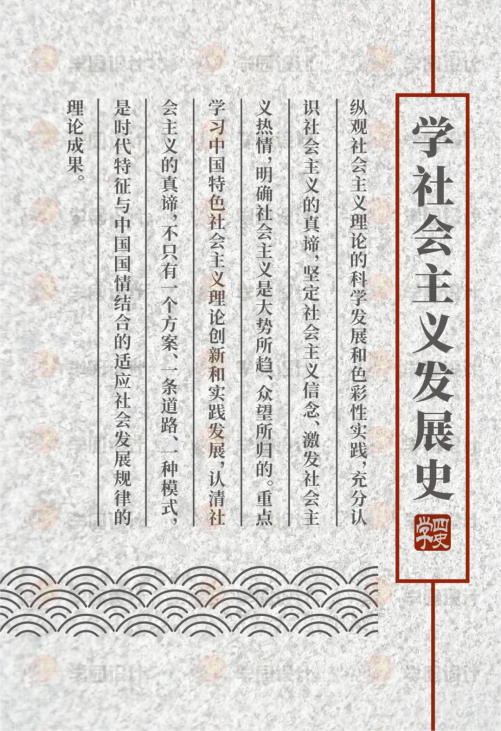 学社会主义发展史
学四史
纵观社会主义理论的科学发展和色彩性实践，充分认
识社会主义的真谛，坚定社会主义信念、激发社会主
义热情，明确社会主义是大势所趋、众望所归的。重点
学习中国特色社会主义理论创新和实践发展，认清社
会主义的真谛，不只有一个方案、一条道路、一种模式，
是时代特征与中国国情结合的适应社会发展规律的
理论成果。